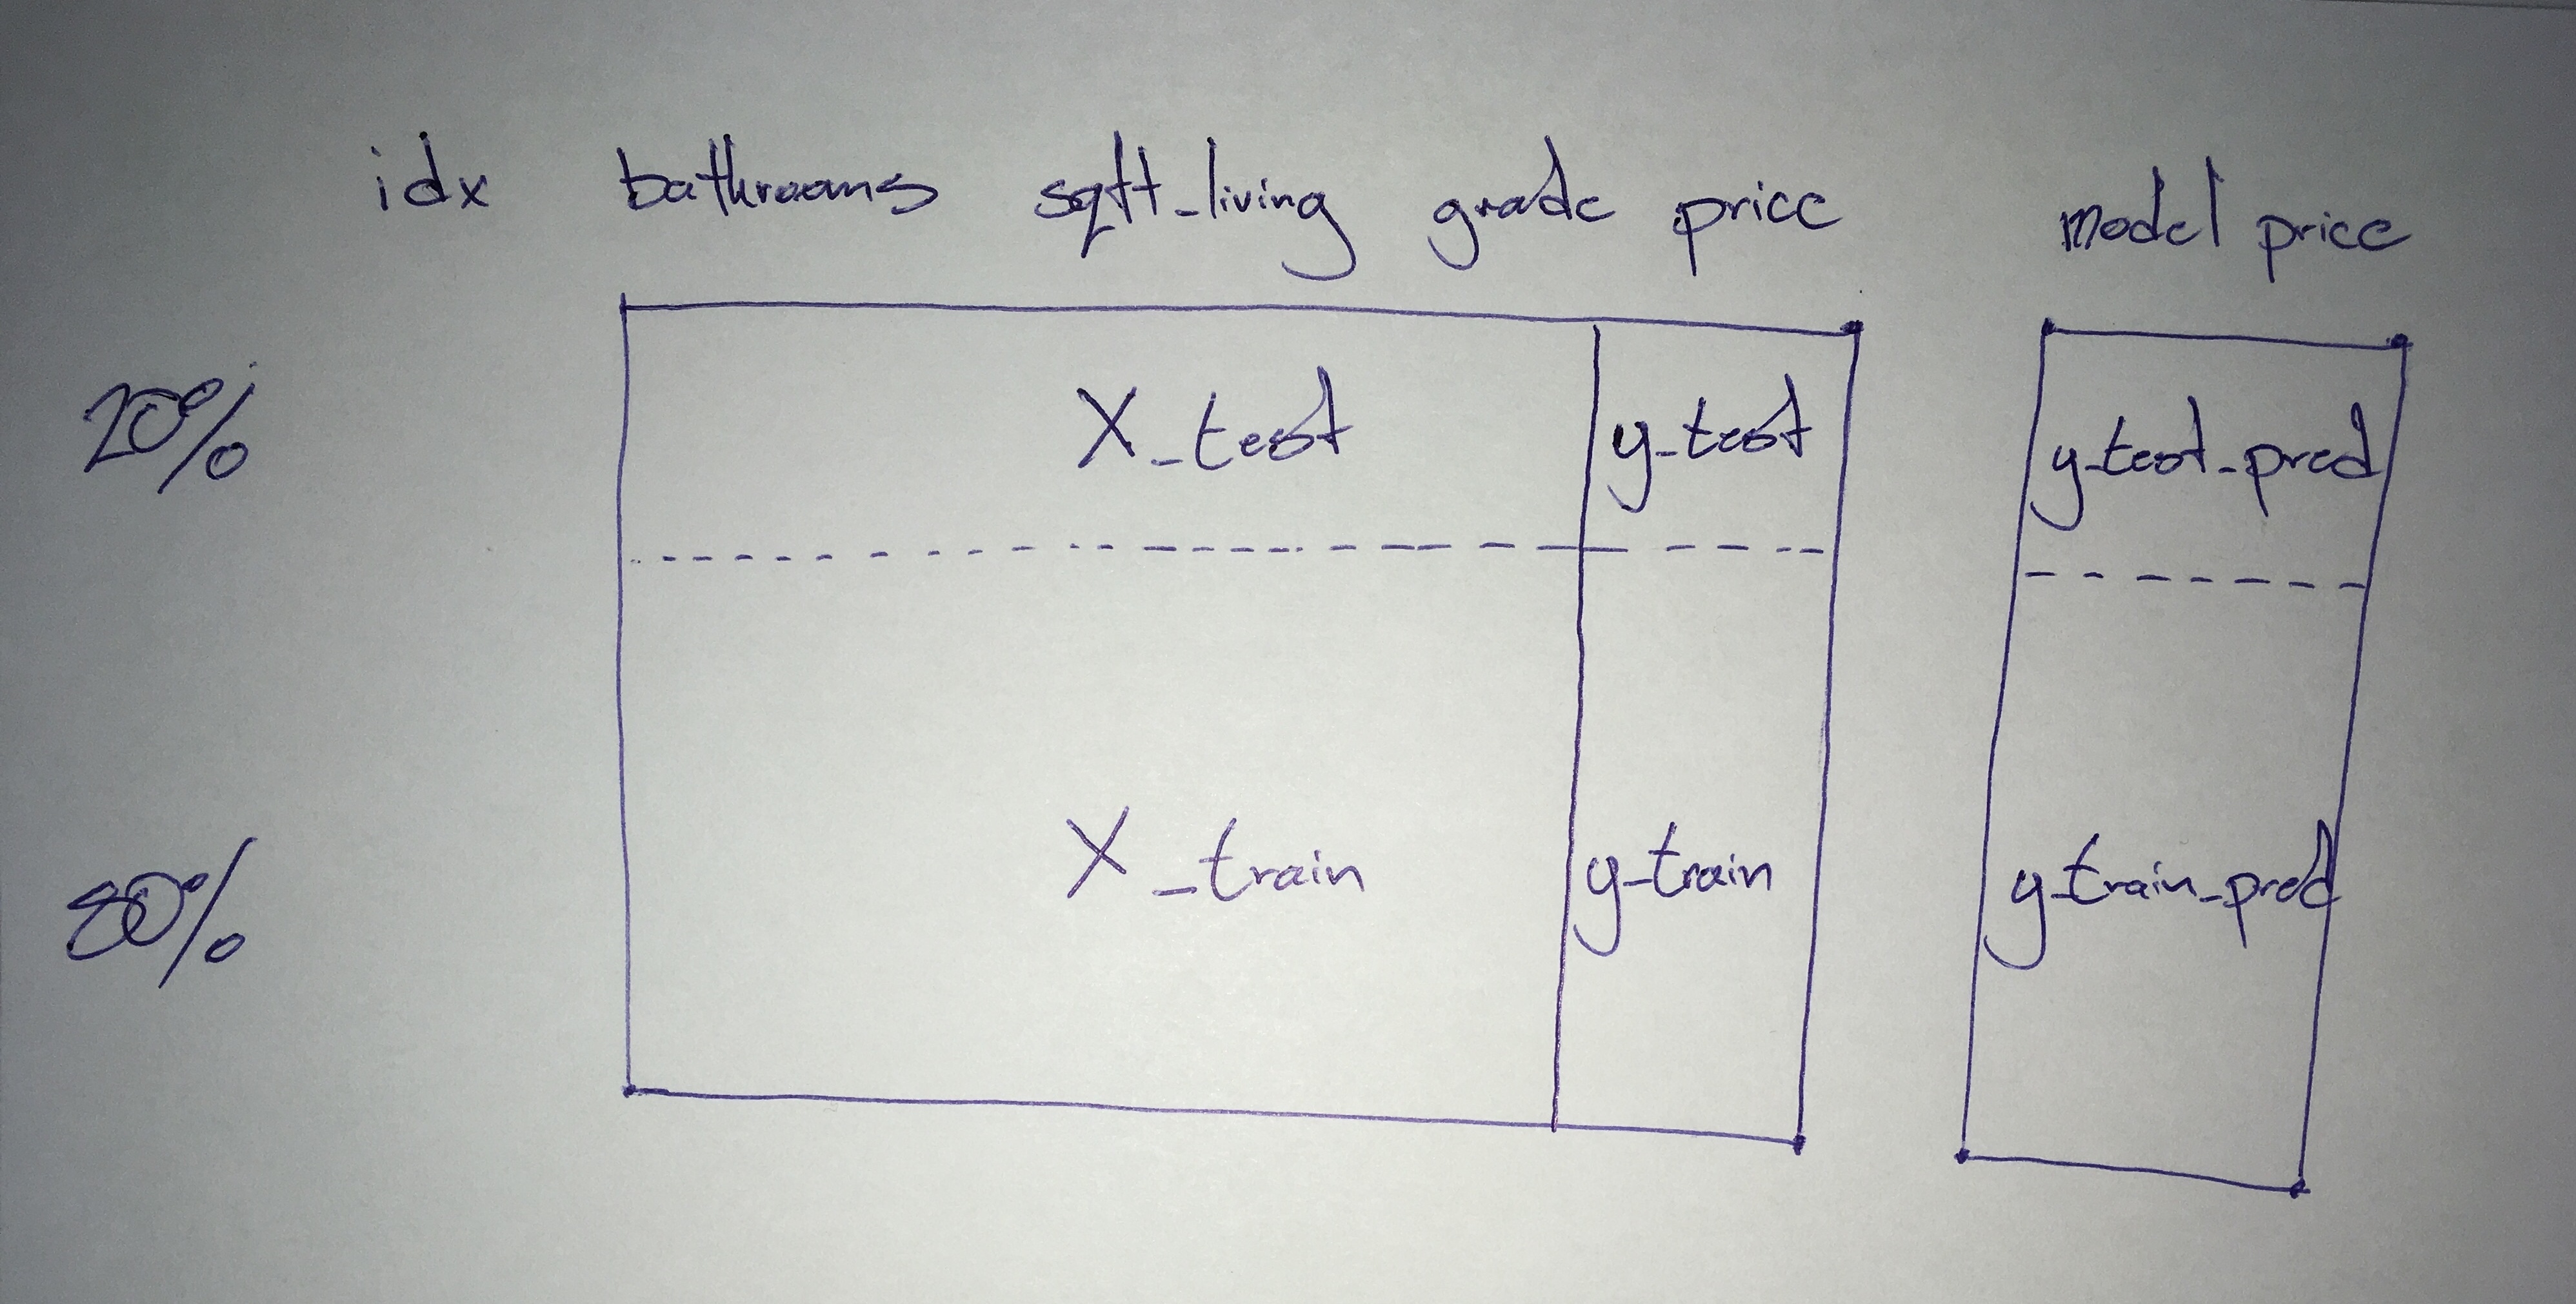 idx bathrooms sqft_living grade price model price
20% X_test y_test y_test_pred
80% X_train y_train y_train_pred